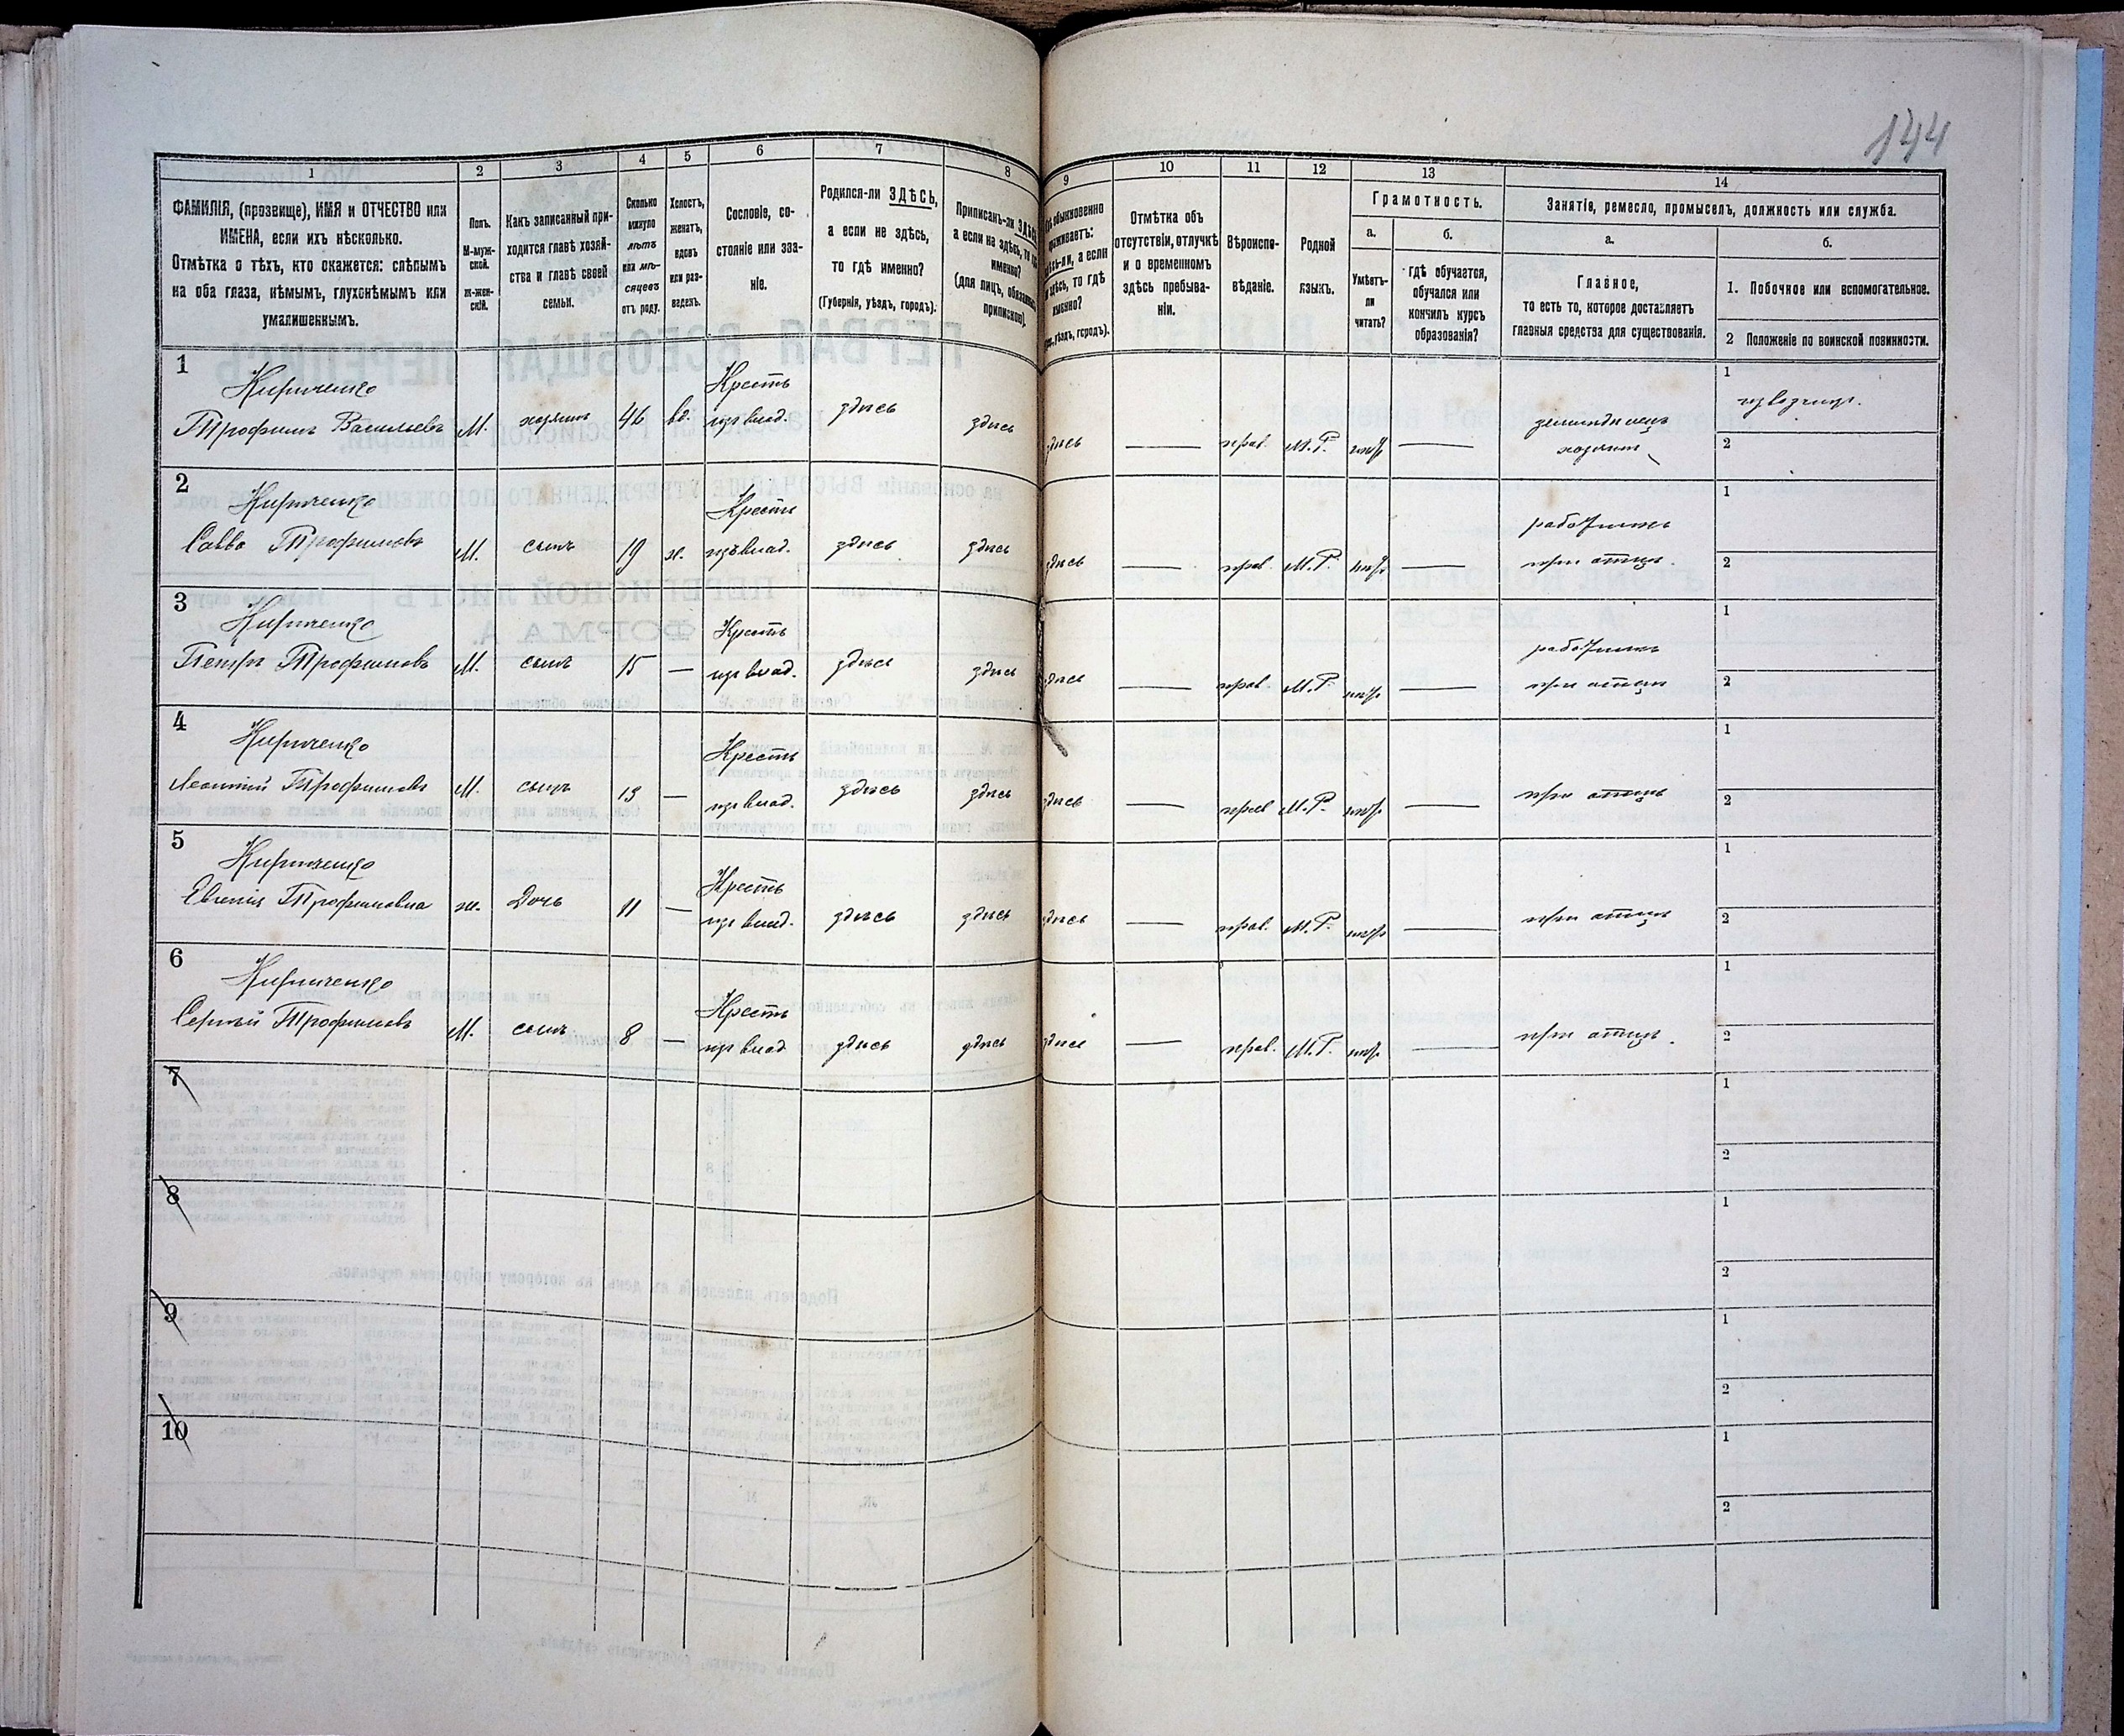 144
1 2 3 4 5 6 7 8 9 10 11 12 13 14
ФАМИЛІЯ, (прозвище), ИМЯ и ОТЧЕСТВО или
ИМЕНА, если ихъ нѣсколько.
Отмѣтка о тѣхъ, кто окажется: слѣпымъ
на оба глаза, нѣмымъ, глухонѣмымъ или
умалишеннымъ.
Полъ.
М-муж-
ской.
ж-жен-
скій.
Какъ записанный при-
ходится главѣ хозяй-
ства и главѣ своей
семьи.
Сколько
минуло
лѣтъ
или мѣ-
сяцевъ
отъ роду.
Холостъ,
женатъ,
вдовъ
или раз-
веденъ.
Сословіе, со-
стояніе или зва-
ніе.
Родился-ли ЗДѢСЬ,
а если не здѣсь,
то гдѣ именно?
(Губернія, уѣздъ, городъ).
Приписанъ-ли
а если не здѣсь, то
именно?
(для лицъ,
припискою)
обыкновенно
а если
здѣсь, то гдѣ
именно?
уѣздъ, городъ).
Отмѣтка объ
отсутствіи, отлучкѣ
и о временномъ
здѣсь пребыва-
ніи.
Вѣроиспо-
вѣданіе.
Родной
языкъ.
Грамотность.
а.
Умѣетъ-
ли
читать?
б.
гдѣ обучается,
обучался или
кончилъ курсъ
образованія?
Занятіе, ремесло, промыселъ, должность или служба.
а.
Главное,
то есть то, которое доставляетъ
главныя средства для существованія.
б.
1. Побочное или вспомогательное.
2 Положеніе по воинской повинности.
1
Кириченко
Трофимъ Васильевъ М. хозяинъ 46 вд. Крестъ
изъ влад. здѣсь здѣсь здѣсь — прав. М.Р. — земледѣлецъ
хозяинъ
1 извозчикъ.
2
2
Кириченко
Савва Трофимовъ М. сынъ 19 х. Крестъ
изъ влад. здѣсь здѣсь здѣсь — прав. М.Р. — работникъ
при отцѣ.
1
2
3
Кириченко
Петръ Трофимовъ М. сынъ 15 — Крестъ
изъ влад. здѣсь здѣсь здѣсь — прав. М.Р. — работникъ
при отцѣ
1
2
4
Кириченко
Леонтій Трофимовъ М. сынъ 13 — Крестъ
изъ влад. здѣсь здѣсь здѣсь — прав М.Р. — при отцѣ
1
2
5
Кириченко
Евгенія Трофимовна ж. Дочь 11 — Крестъ
изъ влад. здѣсь здѣсь здѣсь — прав. М.Р. — при отцѣ
1
2
6
Кириченко
Сергѣй Трофимовъ М. сынъ 8 — Крестъ
изъ влад здѣсь здѣсь здѣсь — прав. М.Р. — при отцѣ.
1
2
7
1
2
8
1
2
9
1
2
10
1
2